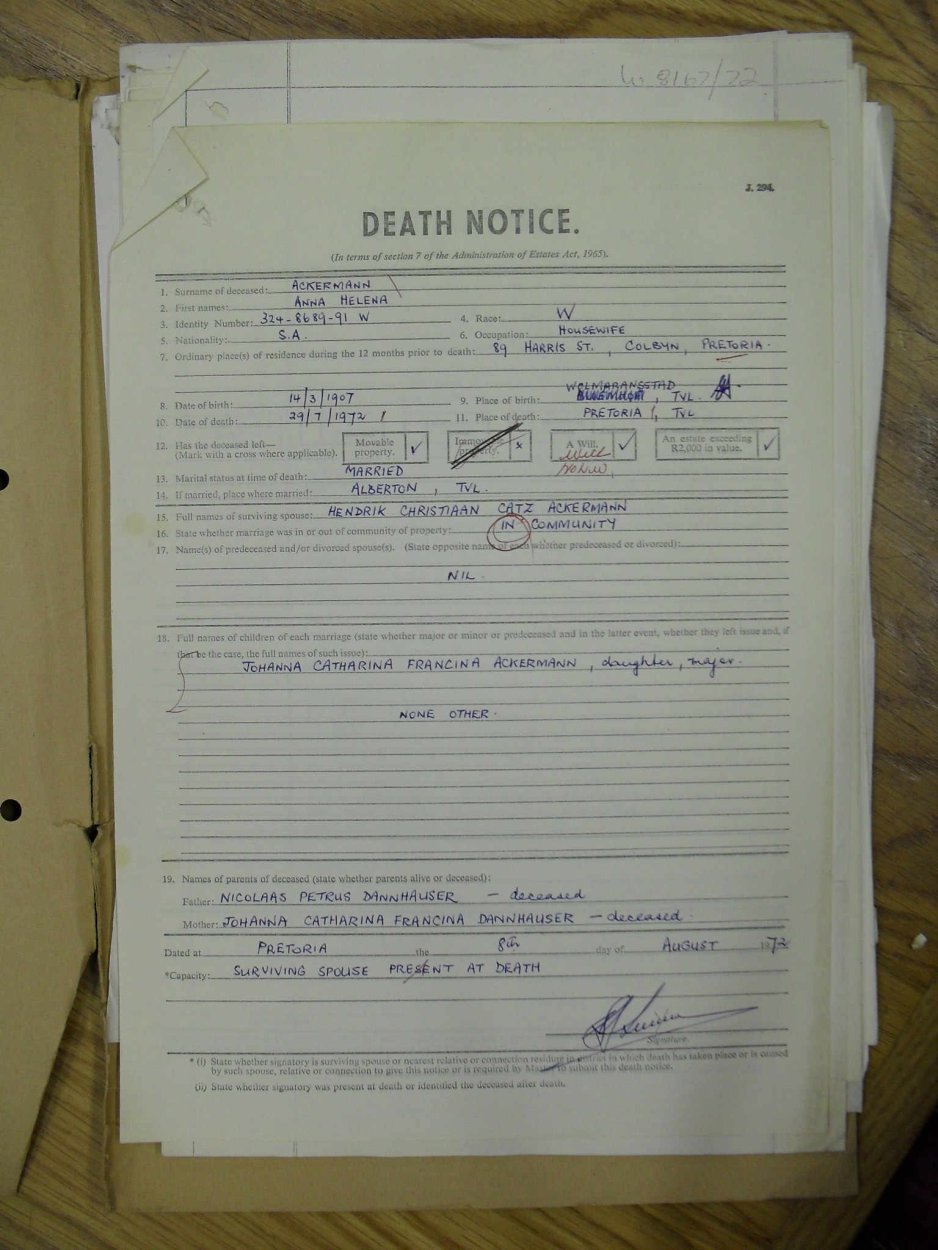 W 8167/72
J. 294.
DEATH NOTICE.
(In terms of section 7 of the Administration of Estates Act, 1965).
1. Surname of deceased: ACKERMANN
2. First names: ANNA HELENA
3. Identity Number: 324-8689-91 W 4. Race: W
5. Nationality: S.A. 6. Occupation: HOUSEWIFE
7. Ordinary place(s) of residence during the 12 months prior to death: 89 HARRIS ST., COLBYN, PRETORIA.
WOLMARANSSTAD
8. Date of birth: 14/3/1907 9. Place of birth: , TVL.
10. Date of death: 29/7/1972 11. Place of death: PRETORIA, TVL
12. Has the deceased left— Movable property. ✓ Immovable property. x A Will. ✓ An estate exceeding R2,000 in value. ✓
(Mark with a cross where applicable). Will
13. Marital status at time of death: MARRIED
14. If married, place where married: ALBERTON, TVL.
15. Full names of surviving spouse: HENDRIK CHRISTIAAN CATZ ACKERMANN
16. State whether marriage was in or out of community of property: IN COMMUNITY
17. Name(s) of predeceased and/or divorced spouse(s). (State opposite name of each whether predeceased or divorced):
NIL.
18. Full names of children of each marriage (state whether major or minor or predeceased and in the latter event, whether they left issue and, if
that be the case, the full names of such issue):
JOHANNA CATHARINA FRANCINA ACKERMANN, daughter, major.
NONE OTHER.
19. Names of parents of deceased (state whether parents alive or deceased):
Father: NICOLAAS PETRUS DANNHAUSER — deceased
Mother: JOHANNA CATHARINA FRANCINA DANNHAUSER — deceased.
Dated at PRETORIA the 8th day of AUGUST 1972
*Capacity: SURVIVING SPOUSE PRESENT AT DEATH
Signature.
* (i) State whether signatory is surviving spouse or nearest relative or connection residing in district in which death has taken place or is caused
by such spouse, relative or connection to give this notice or is required by Master to submit this death notice.
(ii) State whether signatory was present at death or identified the deceased after death.